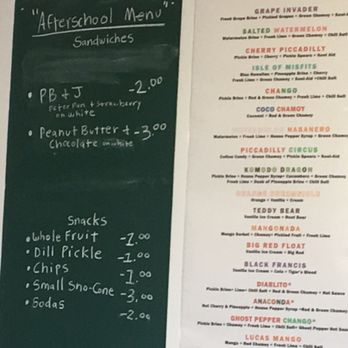 "Afterschool Menu"
Sandwiches
• PB & J -2.00
Peter Pan & Strawberry
on white
• Peanut Butter & -3.00
Chocolate on white
Snacks
• Whole Fruit -1.00
• Dill Pickle -1.00
• Chips -1.00
• Small Sno-Cone -3.00
• Sodas -2.00
GRAPE INVADER
Fresh Grape Brine + Pickled Grapes + Green Chamoy + Salt
SALTED WATERMELON
Watermelon Brine + Fresh Lime + Green Chamoy + Chili Salt
CHERRY PICCADILLY
Pickle Brine + Cherry + Pickle Spears + Kool-Aid
ISLE OF MISFITS
Blue Hawaiian + Pineapple Brine + Cherry
Fresh Lime + Green Chamoy + Chili Salt
CHANGO
Pickle Brine + Red & Green Chamoy + Fresh Lime + Chili Salt
COCO CHAMOY
Coconut + Red & Green Chamoy
HABANERO
Watermelon + Fresh Lime + House Pepper Syrup + Green Chamoy
PICCADILLY CIRCUS
Cotton Candy + Green Chamoy + Pickle Spears + Kool-Aid
KOMODO DRAGON
Pickle Brine + House Pepper Syrup + Cucumbers + Green Chamoy
Fresh Lime + Dash of Pineapple Brine + Chili Salt
ORANGE CREAMSICLE
Orange + Vanilla Ice + Cream
TEDDY BEAR
Vanilla Ice Cream + Root Beer
MANGONADA
Mango Sorbet + Chamoy + Pickled Fruit + Fresh Lime
BIG RED FLOAT
Vanilla Ice Cream + Big Red
BLACK FRANCIS
Vanilla Ice Cream + Cola + Tiger's Blood
DIABLITO*
Pickle Brine + Lime + Chili Salt + Red & Green Chamoy + Hot Sauce
ANACONDA*
Hot Cherry & Pineapple + House Pepper Syrup + Red & Green Chamoy
GHOST PEPPER CHANGO*
Pickle Brine + Chamoy + Fresh Lime + Chili Salt + Ghost Pepper Hot Sauce
LUCAS MANGO
Mango + Red Chamoy + Fresh Lime + Chili Salt